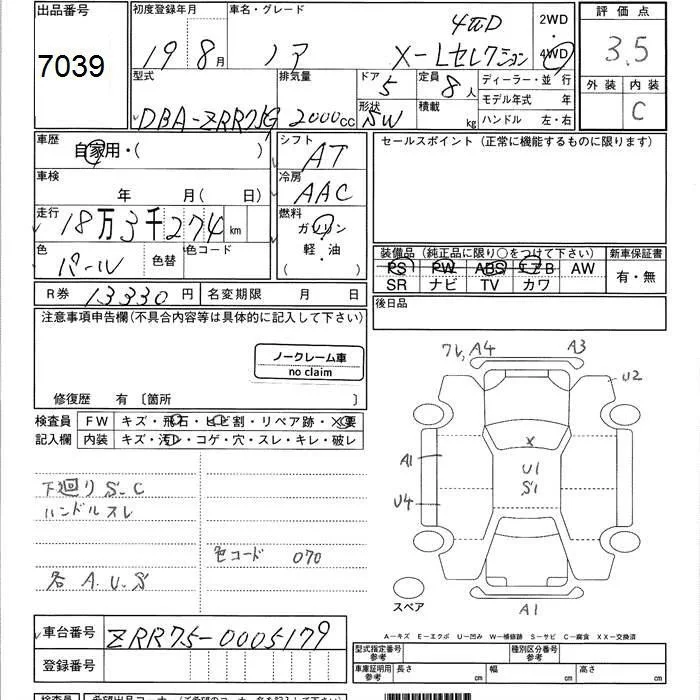 出品番号
7039
初度登録年月
19年8月
車名・グレード
4πD
ノア X-Lセレクション
2WD
4WD
評価点
3.5
外装 内装
C
型式
DBA-ZRR75G
排気量
2000cc
ドア
5
形状
SW
定員
8人
積載
kg
ディーラー・並行
モデル年式 年
ハンドル 左・右
車歴
自家用・( )
シフト
AT
セールスポイント (正常に機能するものに限ります)
車検
年 月(日)
冷房
AAC
走行
18万3千274km
燃料
ガソリン
軽・油
( ・ )
色
パール
色替
色コード
装備品 (純正品に限り○をつけて下さい)
PS PW ABS エアB AW
SR ナビ TV カワ
新車保証書
有・無
R券 13330円
名変期限 月 日
後日品
注意事項申告欄(不具合内容等は具体的に記入して下さい)
ノークレーム車
no claim
修復歴 有 [箇所 ]
検査員
記入欄
FW キズ・飛石・ヒビ割・リペア跡・X要
内装 キズ・汚レ・コゲ・穴・スレ・キレ・破レ
下廻り S.C
ハンドルスレ
色コード 070
各 A.U.S
ワレ A4
A3
U2
A1
U4
X
U1
S1
スペア
A1
A-キズ E-エクボ U-凹み W-補修跡 S-サビ C-腐食 XX-交換済
車台番号 ZRR75-0005179
登録番号
型式指定番号
参考
種別区分番号
参考
車庫証明用
参考
長さ cm
幅 cm
高さ cm
検査員
希望出品コーナー(ご希望のコーナー名を記入して下さい)